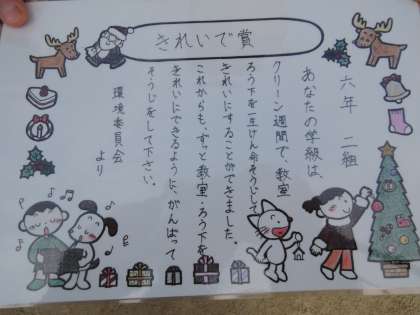 きれいで賞
六年 二組
あなたの学級は、
クリーン週間で、教室
ろう下を一生けん命そうじして
きれいにすることができました。
これからも、ずっと教室・ろう下を
きれいにできるように、がんばって
そうじをして下さい。
環境委員会
より